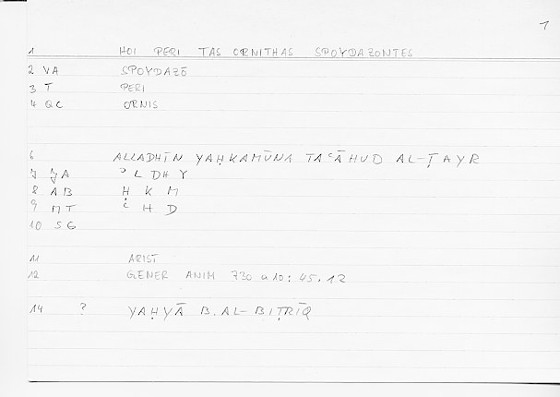 1
1 HOI PERI TAS ORNITHAS SPOYDAZONTES
2 VA SPOYDAZŌ
3 T PERI
4 QC ORNIS
6 ALLADHĪN YAḤKAMŪNA TAʿĀHUD AL-ṬAYR
7 JA ʾ L DH Y
8 AB Ḥ K M
9 MT ʿ H D
10 SG
11 ARIST
12 GENER ANIM 730 a10: 45.12
14 ? YAḤYĀ B. AL-BIṬRĪQ